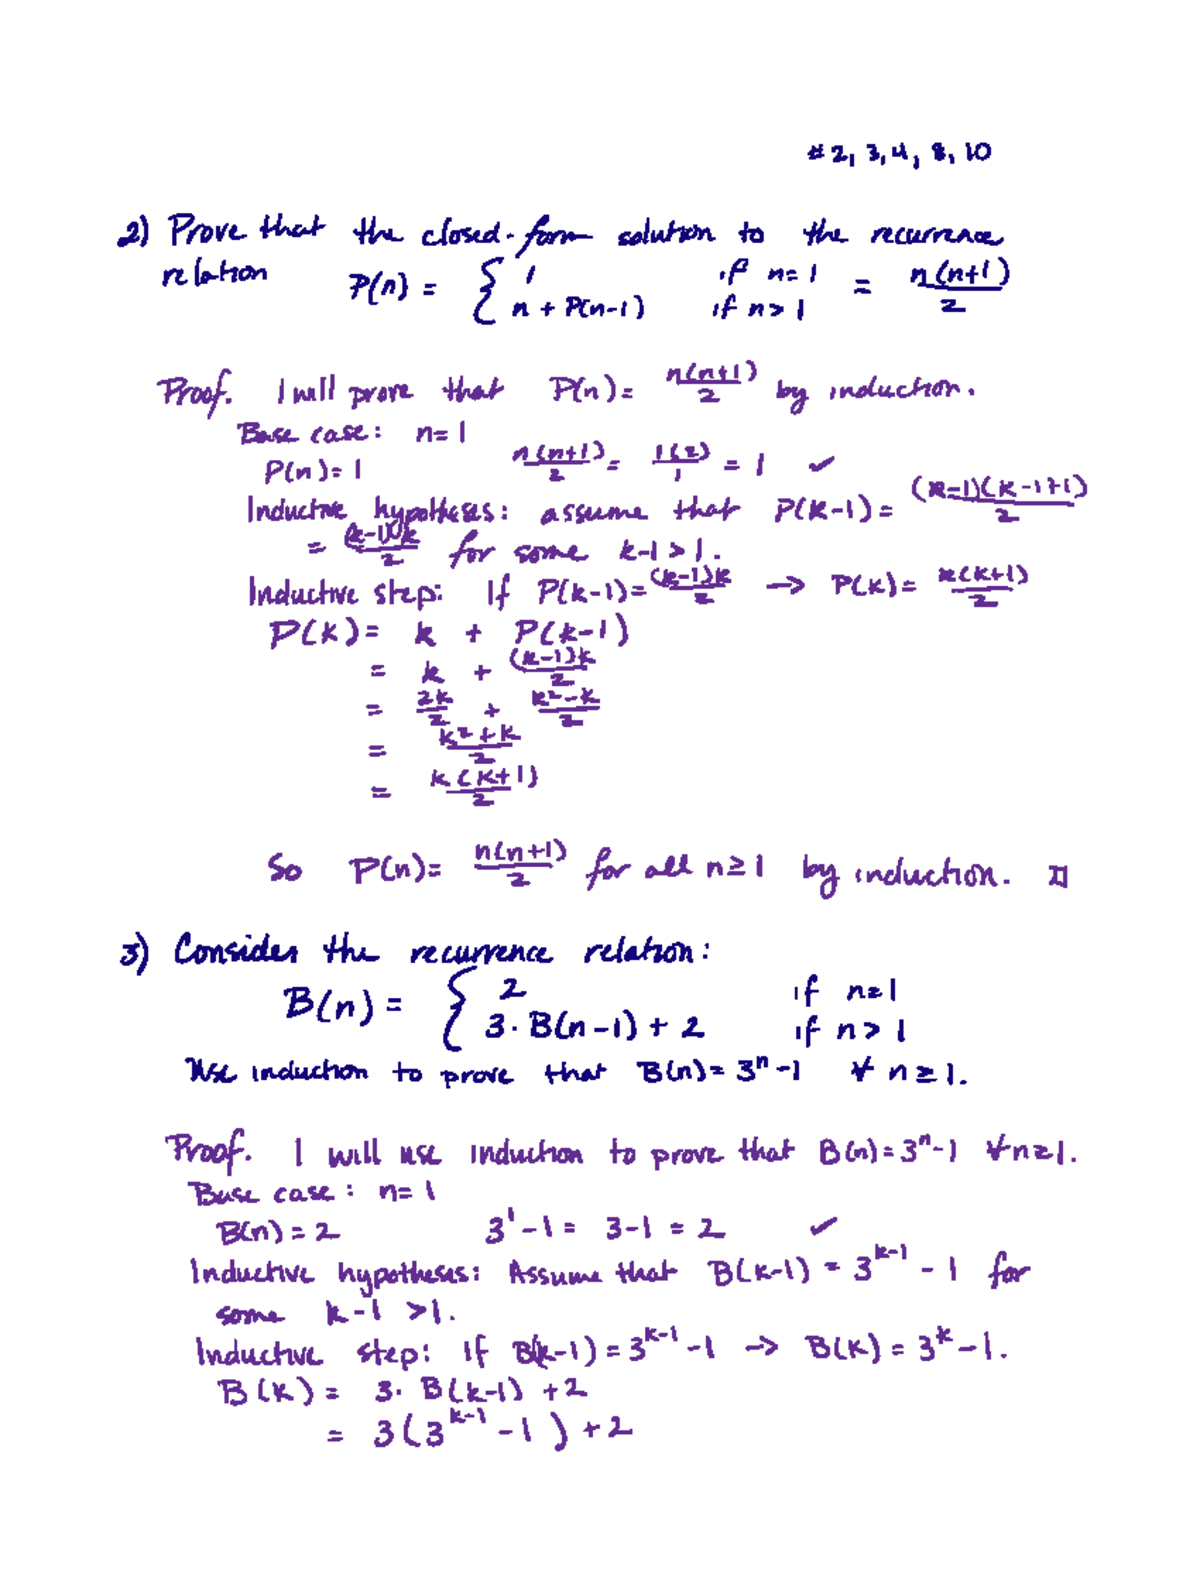 # 2, 3, 4, 8, 10
2) Prove that the closed-form solution to the recurrence
relation P(n) = { 1 if n=1 = n(n+1)/2
n + P(n-1) if n>1
Proof. I will prove that P(n) = n(n+1)/2 by induction.
Base case: n=1
P(n)=1 n(n+1)/2 = 1(2)/1 = 1 ✓
Inductive hypothesis: assume that P(k-1) = (k-1)(k-1+1)/2
= (k-1)k/2 for some k-1>1.
Inductive step: If P(k-1)=(k-1)k/2 → P(k)= k(k+1)/2
P(k) = k + P(k-1)
= k + (k-1)k/2
= 2k/2 + k²-k/2
= k²+k/2
= k(k+1)/2
So P(n)= n(n+1)/2 for all n≥1 by induction. □
3) Consider the recurrence relation:
B(n) = { 2 if n=1
3·B(n-1) + 2 if n>1
Use induction to prove that B(n)= 3ⁿ-1 ∀ n≥1.
Proof. I will use induction to prove that B(n)=3ⁿ-1 ∀n≥1.
Base case: n=1
B(n)=2 3¹-1 = 3-1 = 2 ✓
Inductive hypothesis: Assume that B(k-1) = 3^(k-1) - 1 for
some k-1 >1.
Inductive step: if B(k-1) = 3^(k-1) -1 → B(k) = 3^k -1.
B(k) = 3·B(k-1) +2
= 3(3^(k-1) -1) +2